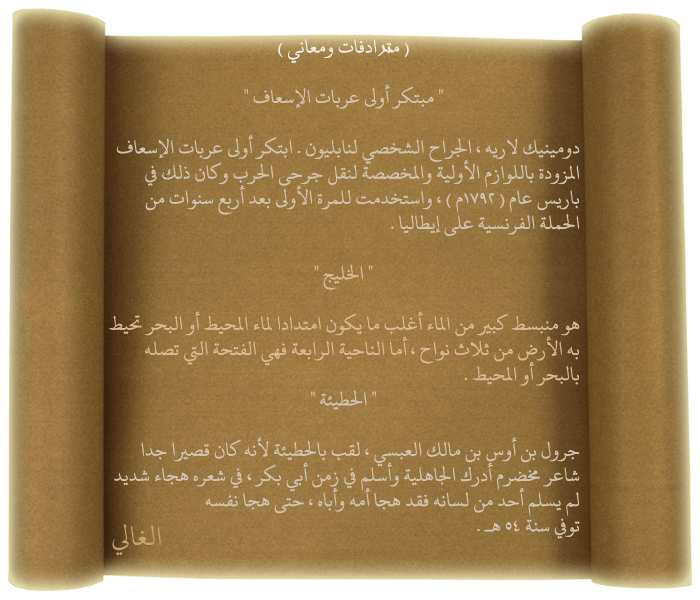 ( مترادفات ومعاني )
" مبتكر أولى عربات الإسعاف "
دومينيك لاريه ، الجراح الشخصي لنابليون . ابتكر أولى عربات الإسعاف
المزودة باللوازم الأولية والمخصصة لنقل جرحى الحرب وكان ذلك في
باريس عام ( ١٧٩٢م ) ، واستخدمت للمرة الأولى بعد أربع سنوات من
الحملة الفرنسية على إيطاليا .
" الخليج "
هو منبسط كبير من الماء أغلب ما يكون امتدادا لماء المحيط أو البحر تحيط
به الأرض من ثلاث نواح ، أما الناحية الرابعة فهي الفتحة التي تصله
بالبحر أو المحيط .
" الحطيئة "
جرول بن أوس بن مالك العبسي ، لقب بالحطيئة لأنه كان قصيرا جدا
شاعر مخضرم أدرك الجاهلية وأسلم في زمن أبي بكر ، في شعره هجاء شديد
لم يسلم أحد من لسانه فقد هجا أمه وأباه ، حتى هجا نفسه
توفي سنة ٥٤ هـ .
الغالي